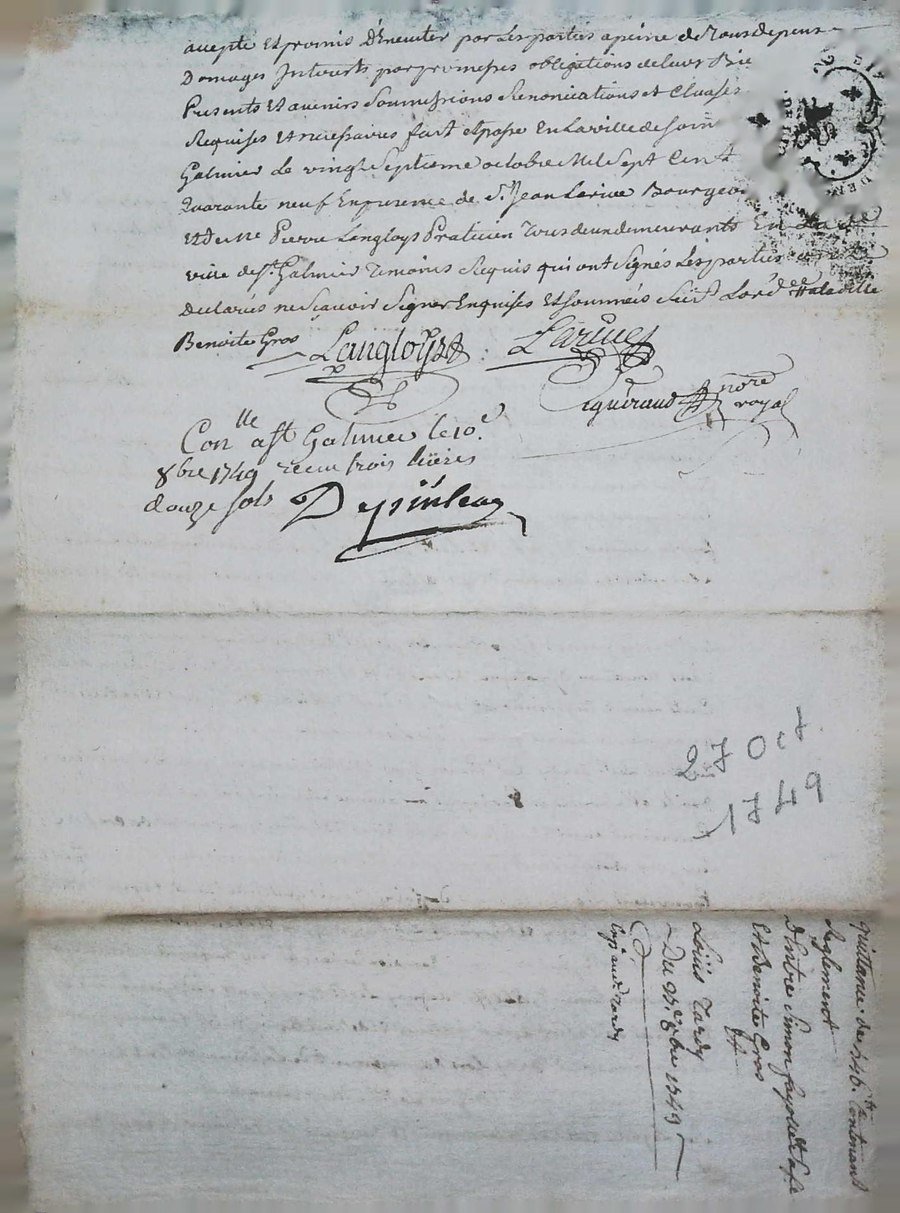 accepte Et promis D'Executer par Les parties a peine de Tous depens
Domages Interests par primesses obligations de leurs Bie
Presents Et avenirs Soumissions Renonciations et Clauses
Requises Et necessaires fait et passé En La ville de Saint
Galmier Le vingt Septieme octobre Mil Sept Cent
Quarante neuf En presence de Sr. Jean Larive Bourgeoi
Et de Me Pierre Langloys Praticien Tous deux demeurants En La de
ville de St. Galmier Temoins Requis qui ont Signés Les parties
Declarés ne Scavoir Signer Enquises Et Sommeés Suivt. L'ord.ce
Benoite Gros
Langloys Larive
Peguiraud nore
royal
Conlle a St Galmier le 10e
8bre 1749 receu trois livres
douze sols Depinleay
27 Oct
1749
quittance de 146 tt Contenant
Reglement
D'Entre Simon fayolle
Et Benoite Gros
Et
Louis Tardy
Du 27e 8bre 1749
Tardy